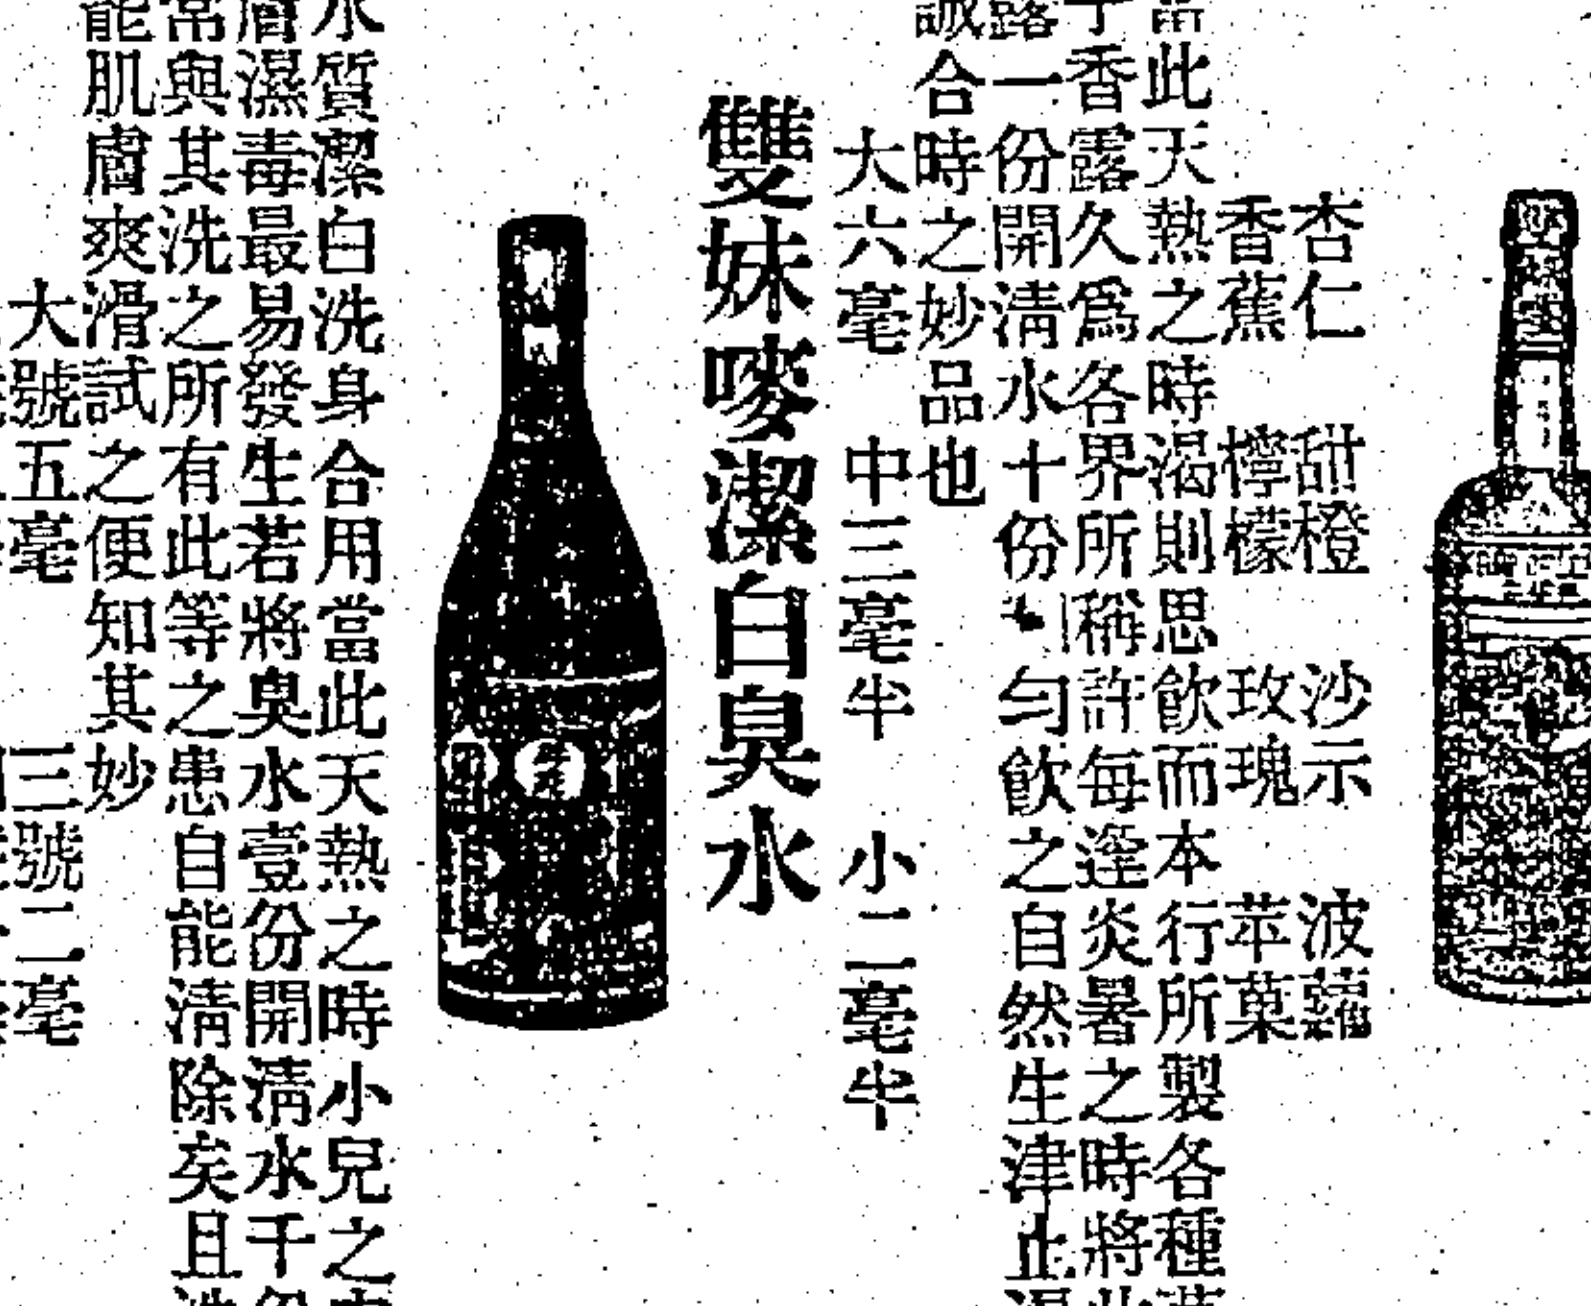 杏仁 甜橙 沙示 波蘿
香蕉 檸檬 玫瑰 苹菓
當此天熱之時渴則思飲而本行所製各種
子香露久爲各界所稱許每逢炎暑之時將
露一份開清水十份 勻飲之自然生津止
誠合時之妙品也
大六毫 中三毫半 小二毫半
雙妹嘜潔白臭水
水質潔白洗身合用當此天熱之時小兒之
膚濕毒最易發生若將臭水壹份開清水千份
常與其洗之所有此等之患自能清除矣且
能肌膚爽滑試之便知其妙
大號五毫 三號二毫